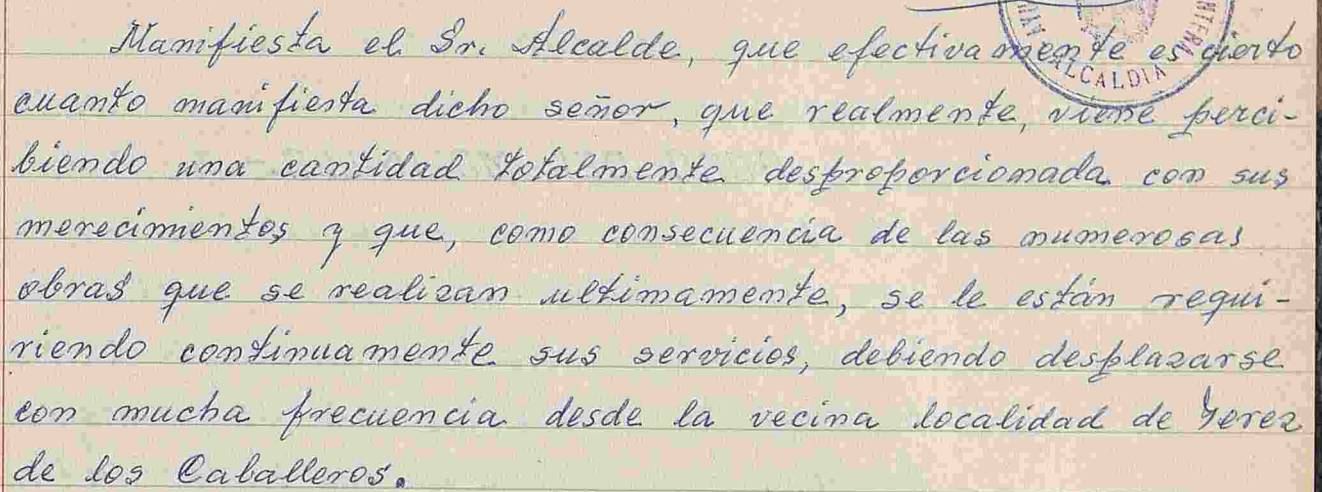 Manifiesta el Sr. Alcalde, que efectivamente es cierto
cuanto manifiesta dicho señor, que realmente, viene perci-
biendo una cantidad totalmente desproporcionada con sus
merecimientos y que, como consecuencia de las numerosas
obras que se realizan ultimamente, se le están requi-
riendo continuamente sus servicios, debiendo desplazarse
con mucha frecuencia desde la vecina localidad de Jerez
de los Caballeros.
ALCALDIA